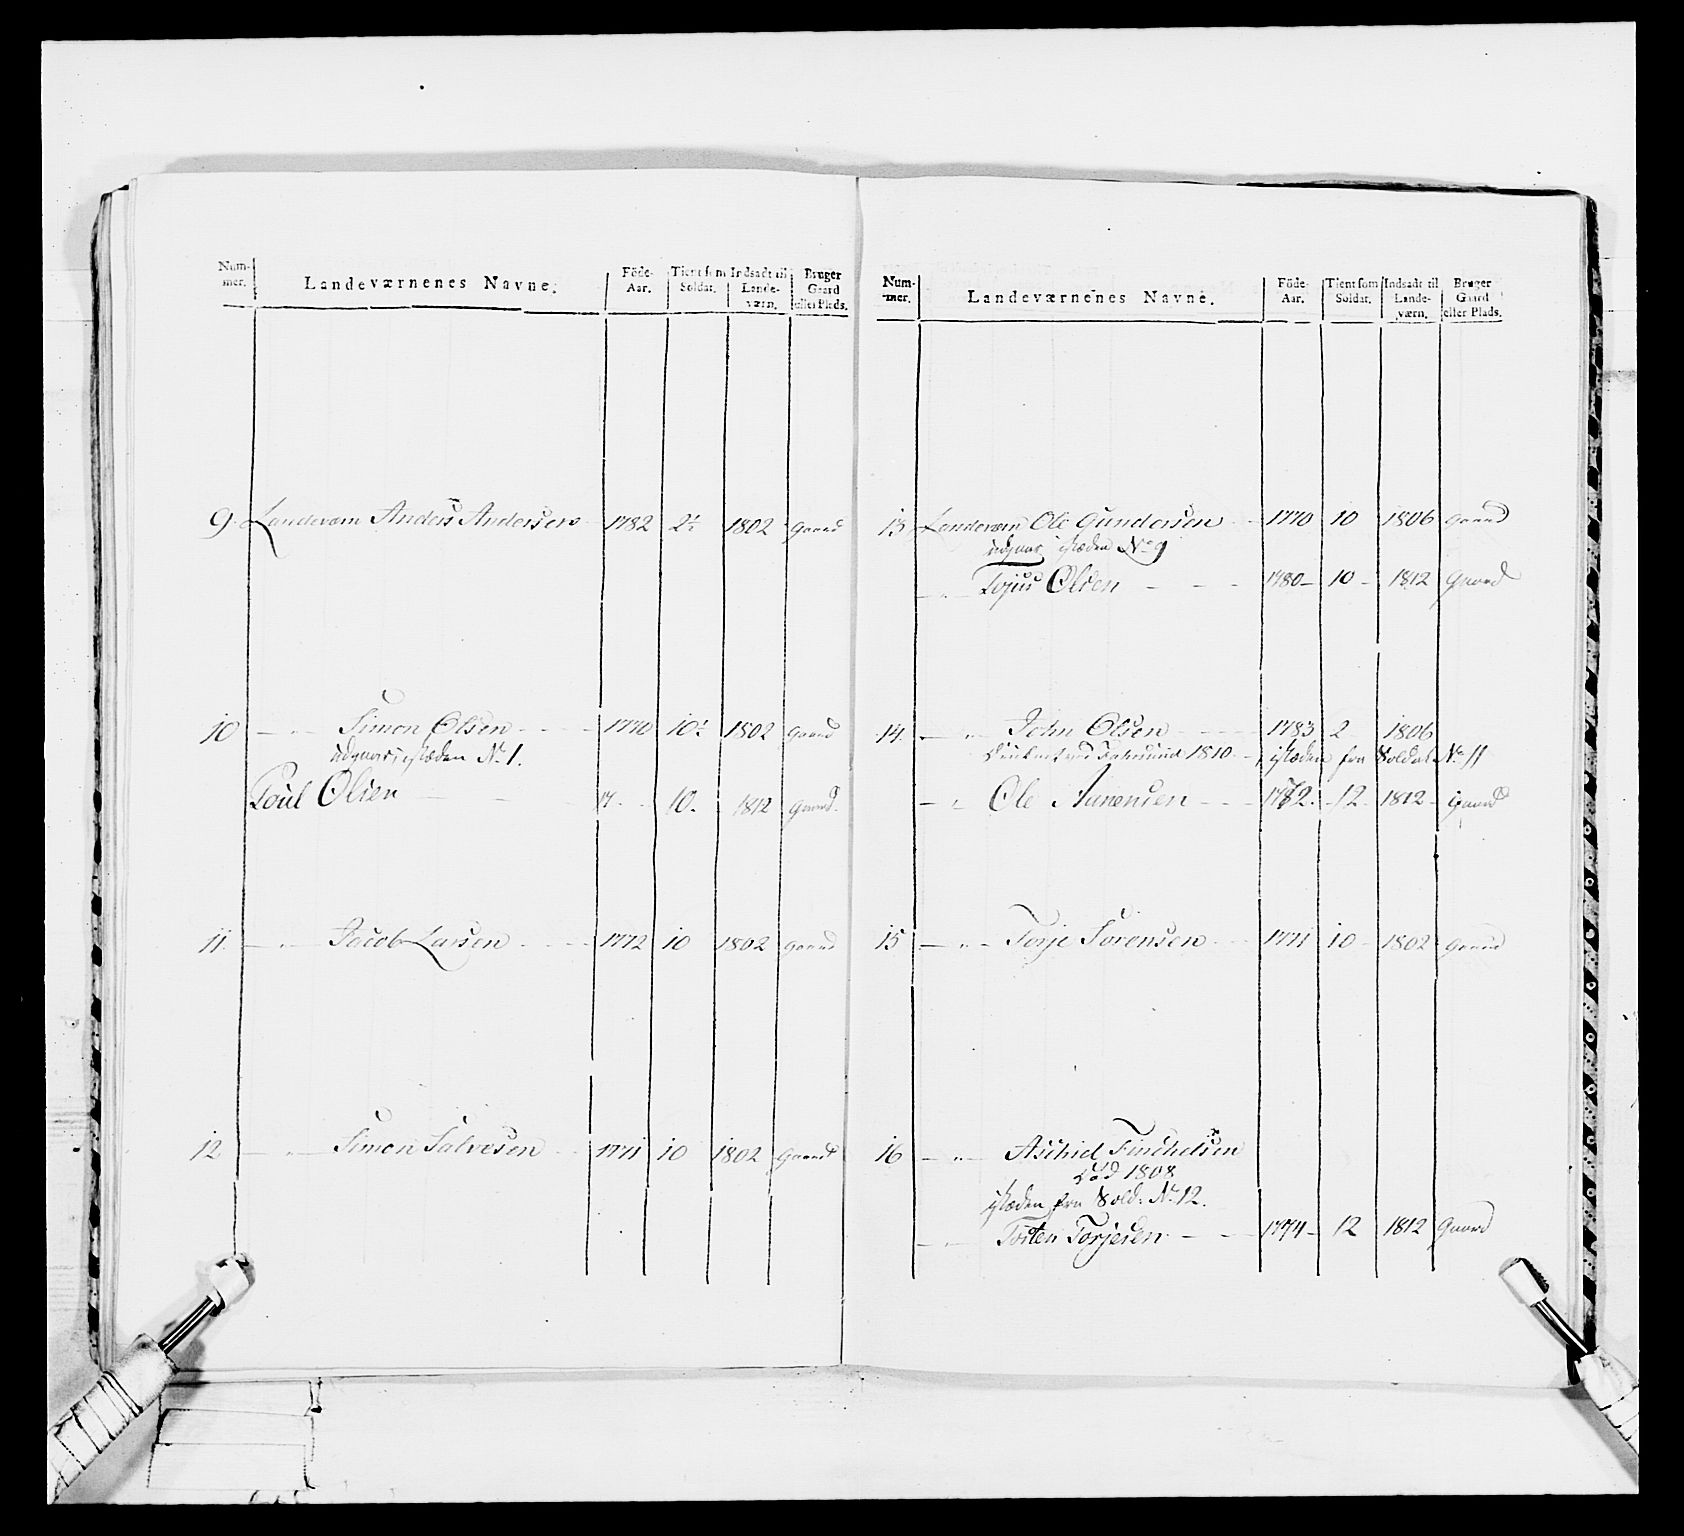 Num-mer. Landeværnenes Navne. Föde-Aar. Tient som Soldat. Indsadt til Lande-værn. Bruger Gaard eller Plads.
9. Landeværn Anders Andersen 1782 2½ 1802 Gaard
10 — „ — Simon Olsen 1770 10½ 1802 Gaard
udgaar istæden No 1.
Poul Olsen 17 10. 1812 Gaard.
11. — „ — Jacob Larsen 1772 10 1802 Gaard
12 — „ — Simon Salvesen 1771 10 1802 Gaard
Num-mer. Landeværnenes Navne. Föde-Aar. Tient som Soldat. Indsadt til Lande-værn. Bruger Gaard eller Plads.
13 Landeværn Ole Gundersen 1770 10 1806 Gaard
udgaar istæden No 9
— „ — Tojus Olsen 1780 10 1812 Gaard
14. — „ — John Olsen 1783 2 1806
1810 istæden fra Soldat No 11
— „ Ole Aanensen 1772. 12 1812 Gaard
15 — „ — Torje Sørensen 1771 10 1802 Gaard
16 — „ — Aschid Finchelsen
død 1808
istæden fra Sold: No 12.
— „ — Tosten Torjesen 1774 12 1812 Gaard